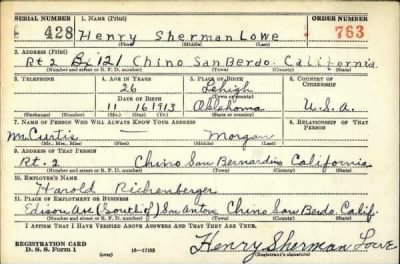 SERIAL NUMBER 1. NAME (Print) ORDER NUMBER
428 Henry Sherman Lowe 763
(First) (Middle) (Last)
2. ADDRESS (Print)
Rt 2 Bx 121 Chino San Berdo. California
(Number and street or R. F. D. number) (Town) (County) (State)
3. TELEPHONE 4. AGE IN YEARS 5. PLACE OF BIRTH 6. COUNTRY OF CITIZENSHIP
26 Lehigh
DATE OF BIRTH (Town or county)
11 16 1913 Oklahoma U.S.A.
(Exchange) (Number) (Mo.) (Day) (Yr.) (State or country)
7. NAME OF PERSON WHO WILL ALWAYS KNOW YOUR ADDRESS 8. RELATIONSHIP OF THAT PERSON
Mr. Curtis — Morgan
(Mr., Mrs., Miss) (First) (Middle) (Last)
9. ADDRESS OF THAT PERSON
Rt. 2 Chino San Bernardino California
(Number and street or R. F. D. number) (Town) (County) (State)
10. EMPLOYER'S NAME
Harold Richenberger
11. PLACE OF EMPLOYMENT OR BUSINESS
Edison Ave (South of) San Antone Chino San Berdo. Calif.
(Number and street or R. F. D. number) (Town) (County) (State)
I AFFIRM THAT I HAVE VERIFIED ABOVE ANSWERS AND THAT THEY ARE TRUE.
REGISTRATION CARD
D. S. S. Form 1 16—17105 Henry Sherman Lowe
(over) (Registrant's signature)